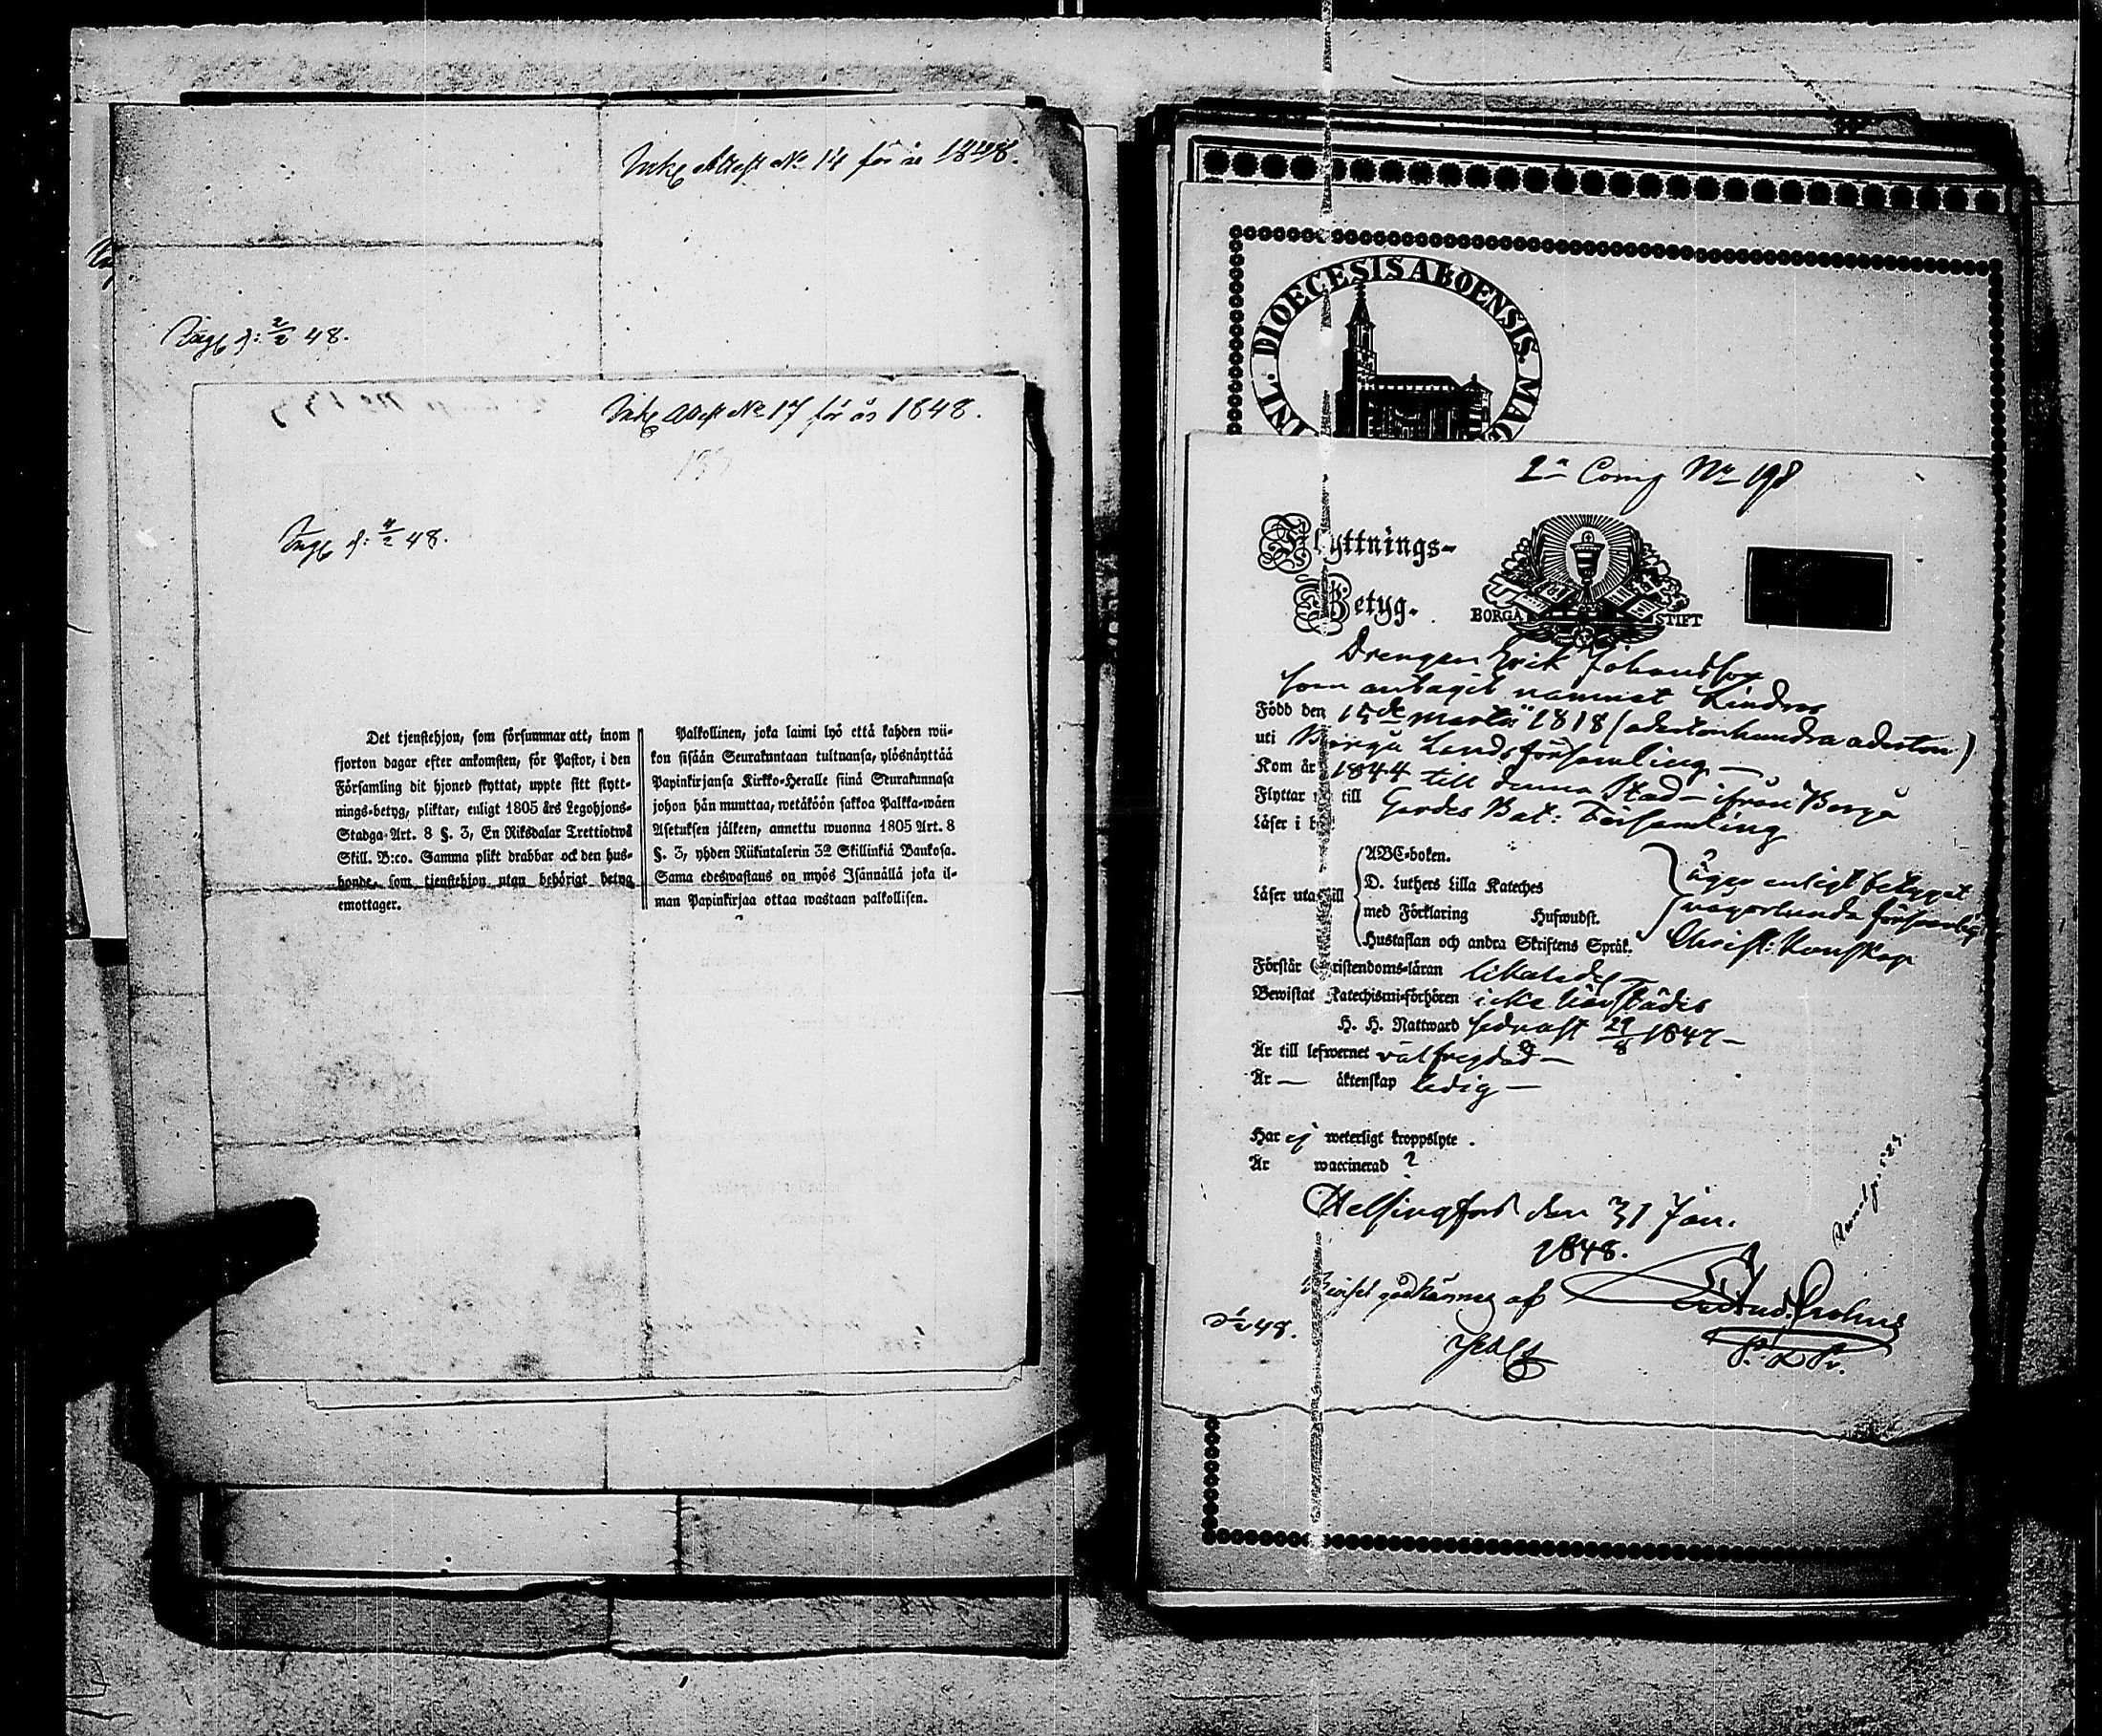 Inkg Attest No 14 för år 1848.
Ingg d: 2/2 48.
Inkg Attest No 17 för år 1848.
Ingg d: 4/2 48.
Det tjenstehjon, som försummar att, inom
fjorton dagar efter ankomsten, för Pastor, i den
Församling dit hjonet flyttat, uppte sitt flytt-
nings-betyg, pliktar, enligt 1805 års Legohjons-
Stadga Art. 8 §. 3, En Riksdalar Trettiotwå
Skill. B:co. Samma plikt drabbar ock den hus-
bonde, som tjenstehjon utan behörigt betyg
emottager.
Palkollinen, joka laimi lyö että kahden wii-
kon sisään Seurakuntaan tultuansa, ylösnäyttää
Papinkirjansa Kirkko-Heralle siinä Seurakunnasa
johon hän muuttaa, wetäköön sakkoa Palkka-wäen
Asetuksen jälkeen, annettu wuonna 1805 Art. 8
§. 3, yhden Riikintalerin 32 Skillinkiä Bankosa.
Sama edeswastaus on myös Isännällä joka il-
man Papinkirjaa ottaa wastaan palkollisen.
DIOECESIS ABOENSIS. MAG
INL.
2a Comp No 198
Flyttnings-
Betyg.
BORGÅ STIFT
Drengen Erik Johansson
som antagit namnet Lindros
Född den 15de Martii 1818 (adertonhundra aderton)
uti Borgå Landsförsamling —
Kom år 1844 till denna Stad — ifrån Borgå
Flyttar till Gardes Bat: Församling
Läser i
Läser utantill
ABC-boken.
D. Luthers Lilla Kateches
med Förklaring Hufwudst.
Hustaflan och andra Skriftens Språk.
äger enligt betyget
någorlunda försvarlig
Christ: Kunskap
Förstår Christendoms-läran likaledes
Bewistat Katechismi-förhören icke härstädes
H. H. Nattward sednast 29/8 1847 —
Är till lefwernet välfrejdad —
Är — äktenskap ledig —
Har ej weterligt kroppslyte .
Är waccinerad ?
Helsingfors den 31 Jan.
1848.
godkännes af
48.